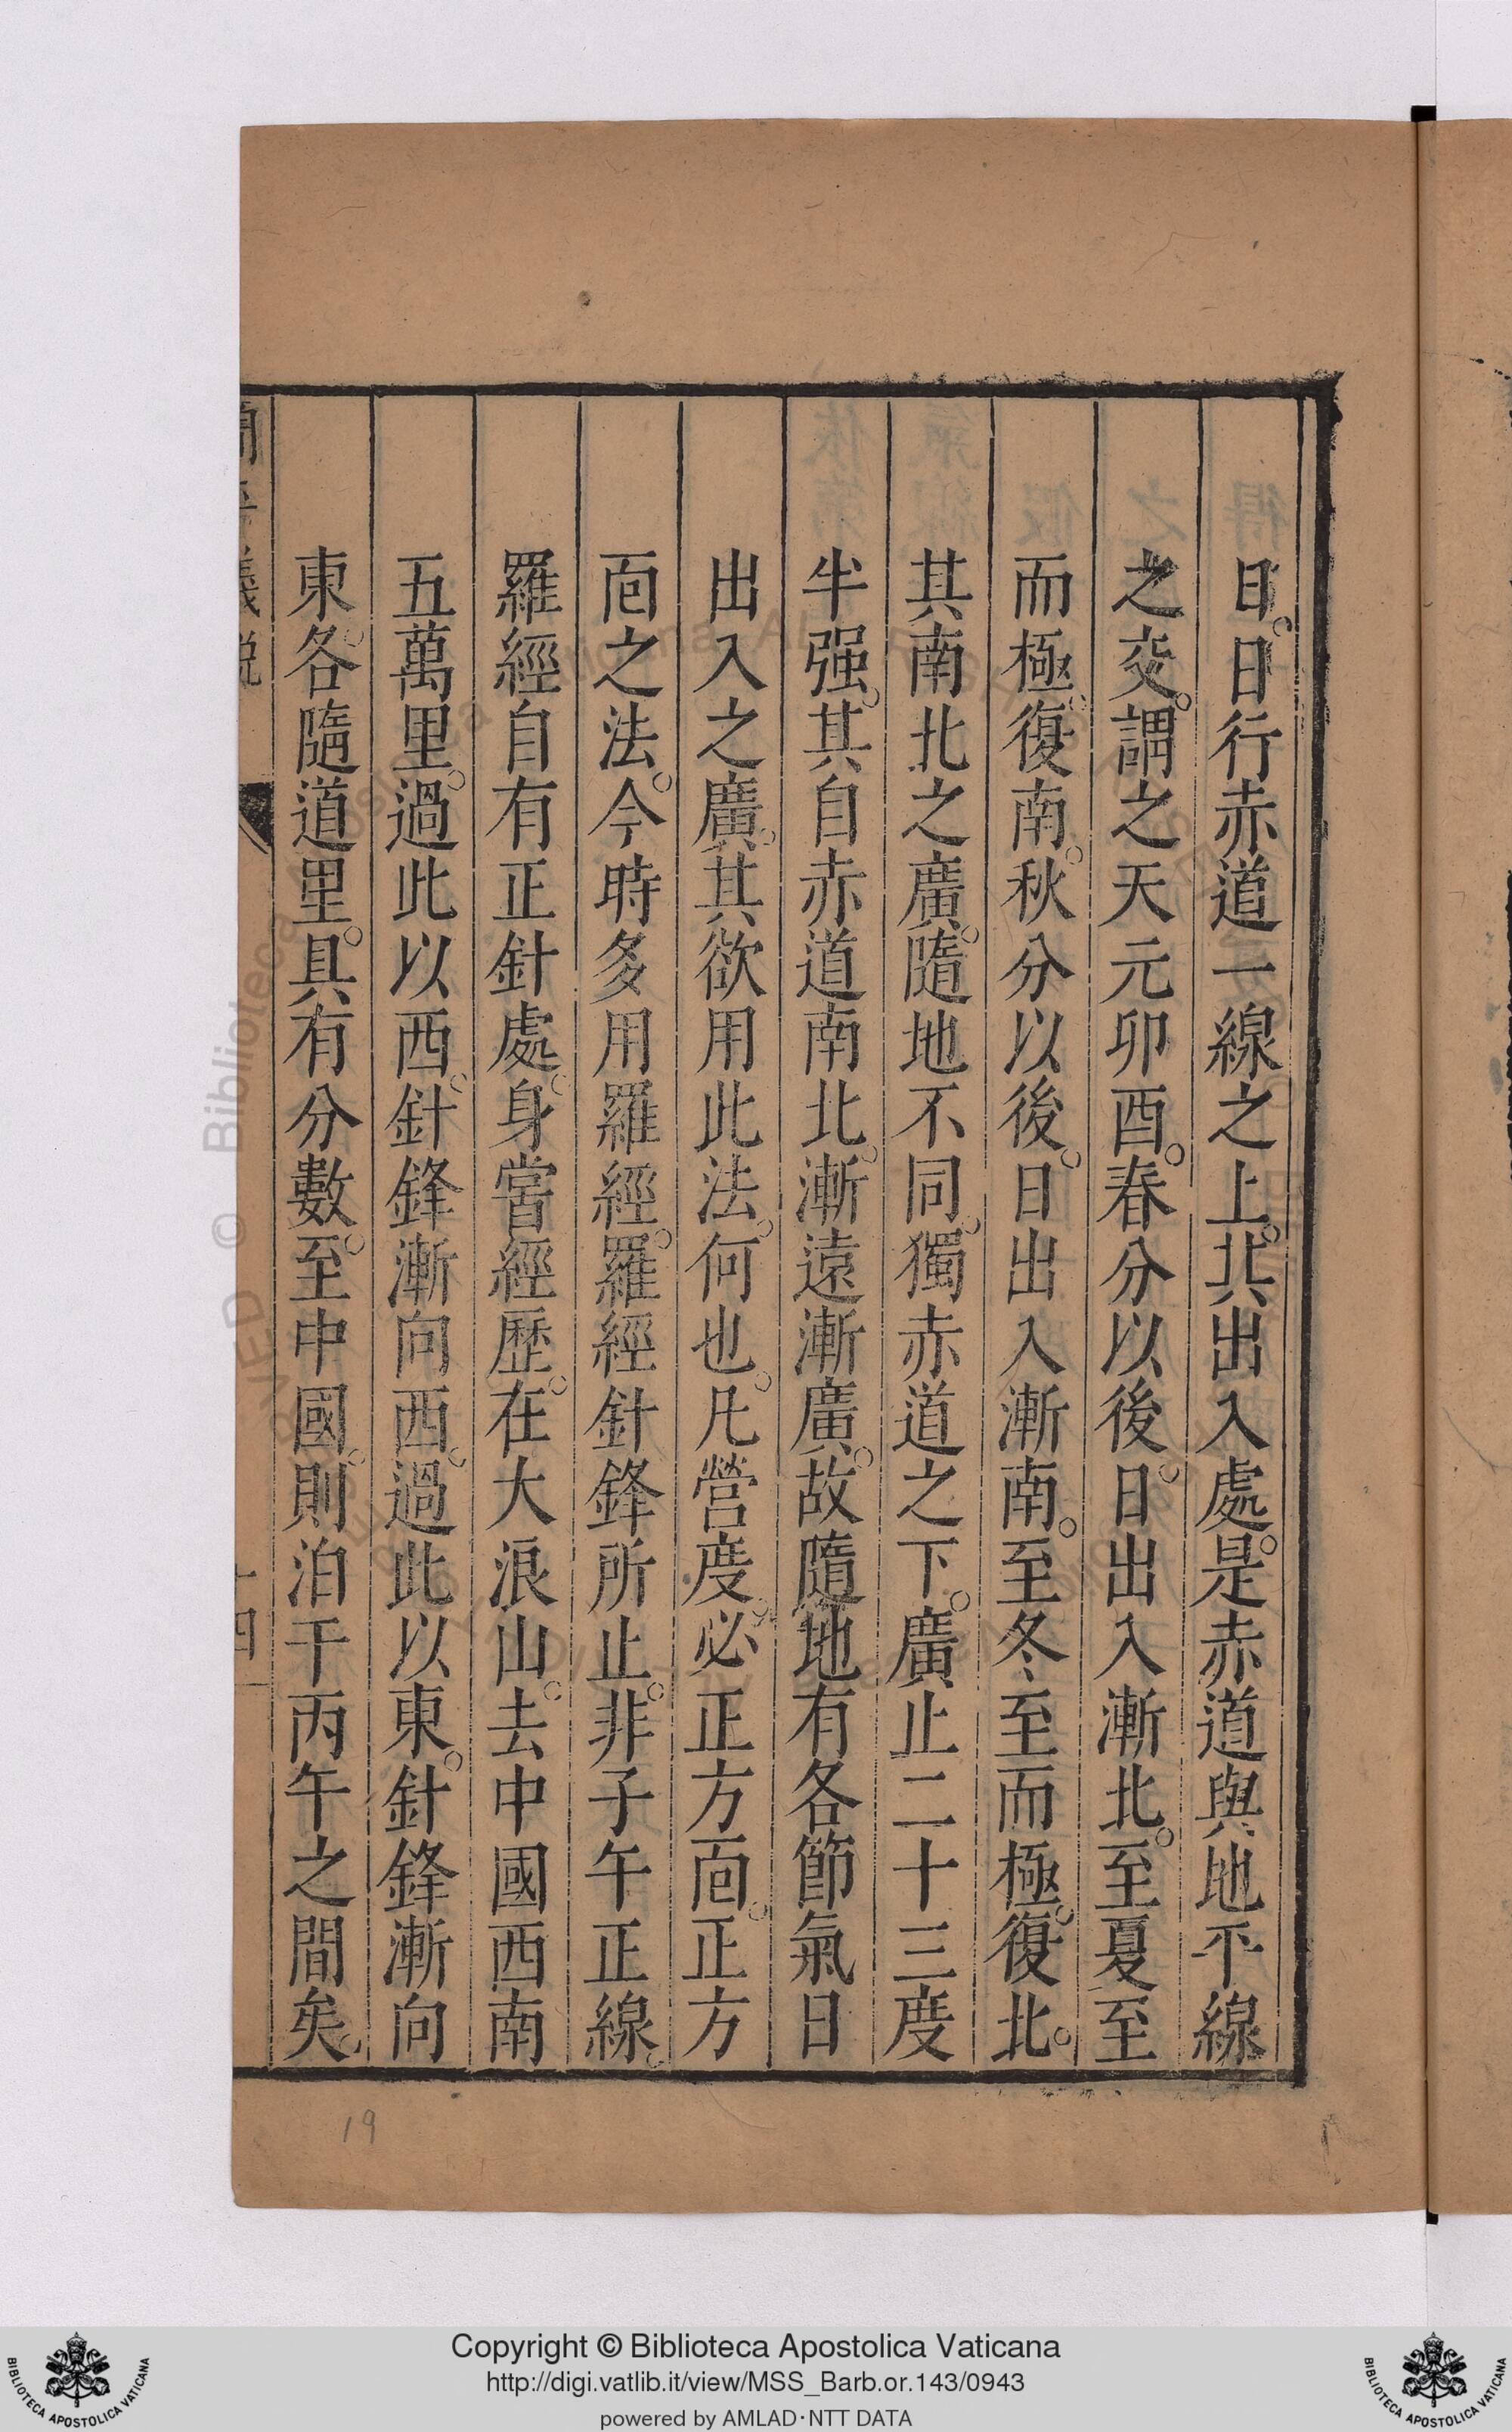 日日行赤道一線之上其出入處是赤道與地平線
之交謂之天元卯酉春分以後日出入漸北至夏至
而極復南秋分以後日出入漸南至冬至而極復北
其南北之廣隨地不同獨赤道之下廣止二十三度
半强其自赤道南北漸遠漸廣故隨地有各節氣日
出入之廣其欲用此法何也凡營度必正方面正方
面之法今時多用羅經羅經針鋒所止非子午正線
羅經自有正針處身嘗經歷在大浪山去中國西南
五萬里過此以西針鋒漸向西過此以東針鋒漸向
東各隨道里具有分數至中國則泊于丙午之間矣
Copyright © Biblioteca Apostolica Vaticana
http://digi.vatlib.it/view/MSS_Barb.or.143/0943
powered by AMLAD·NTT DATA
19